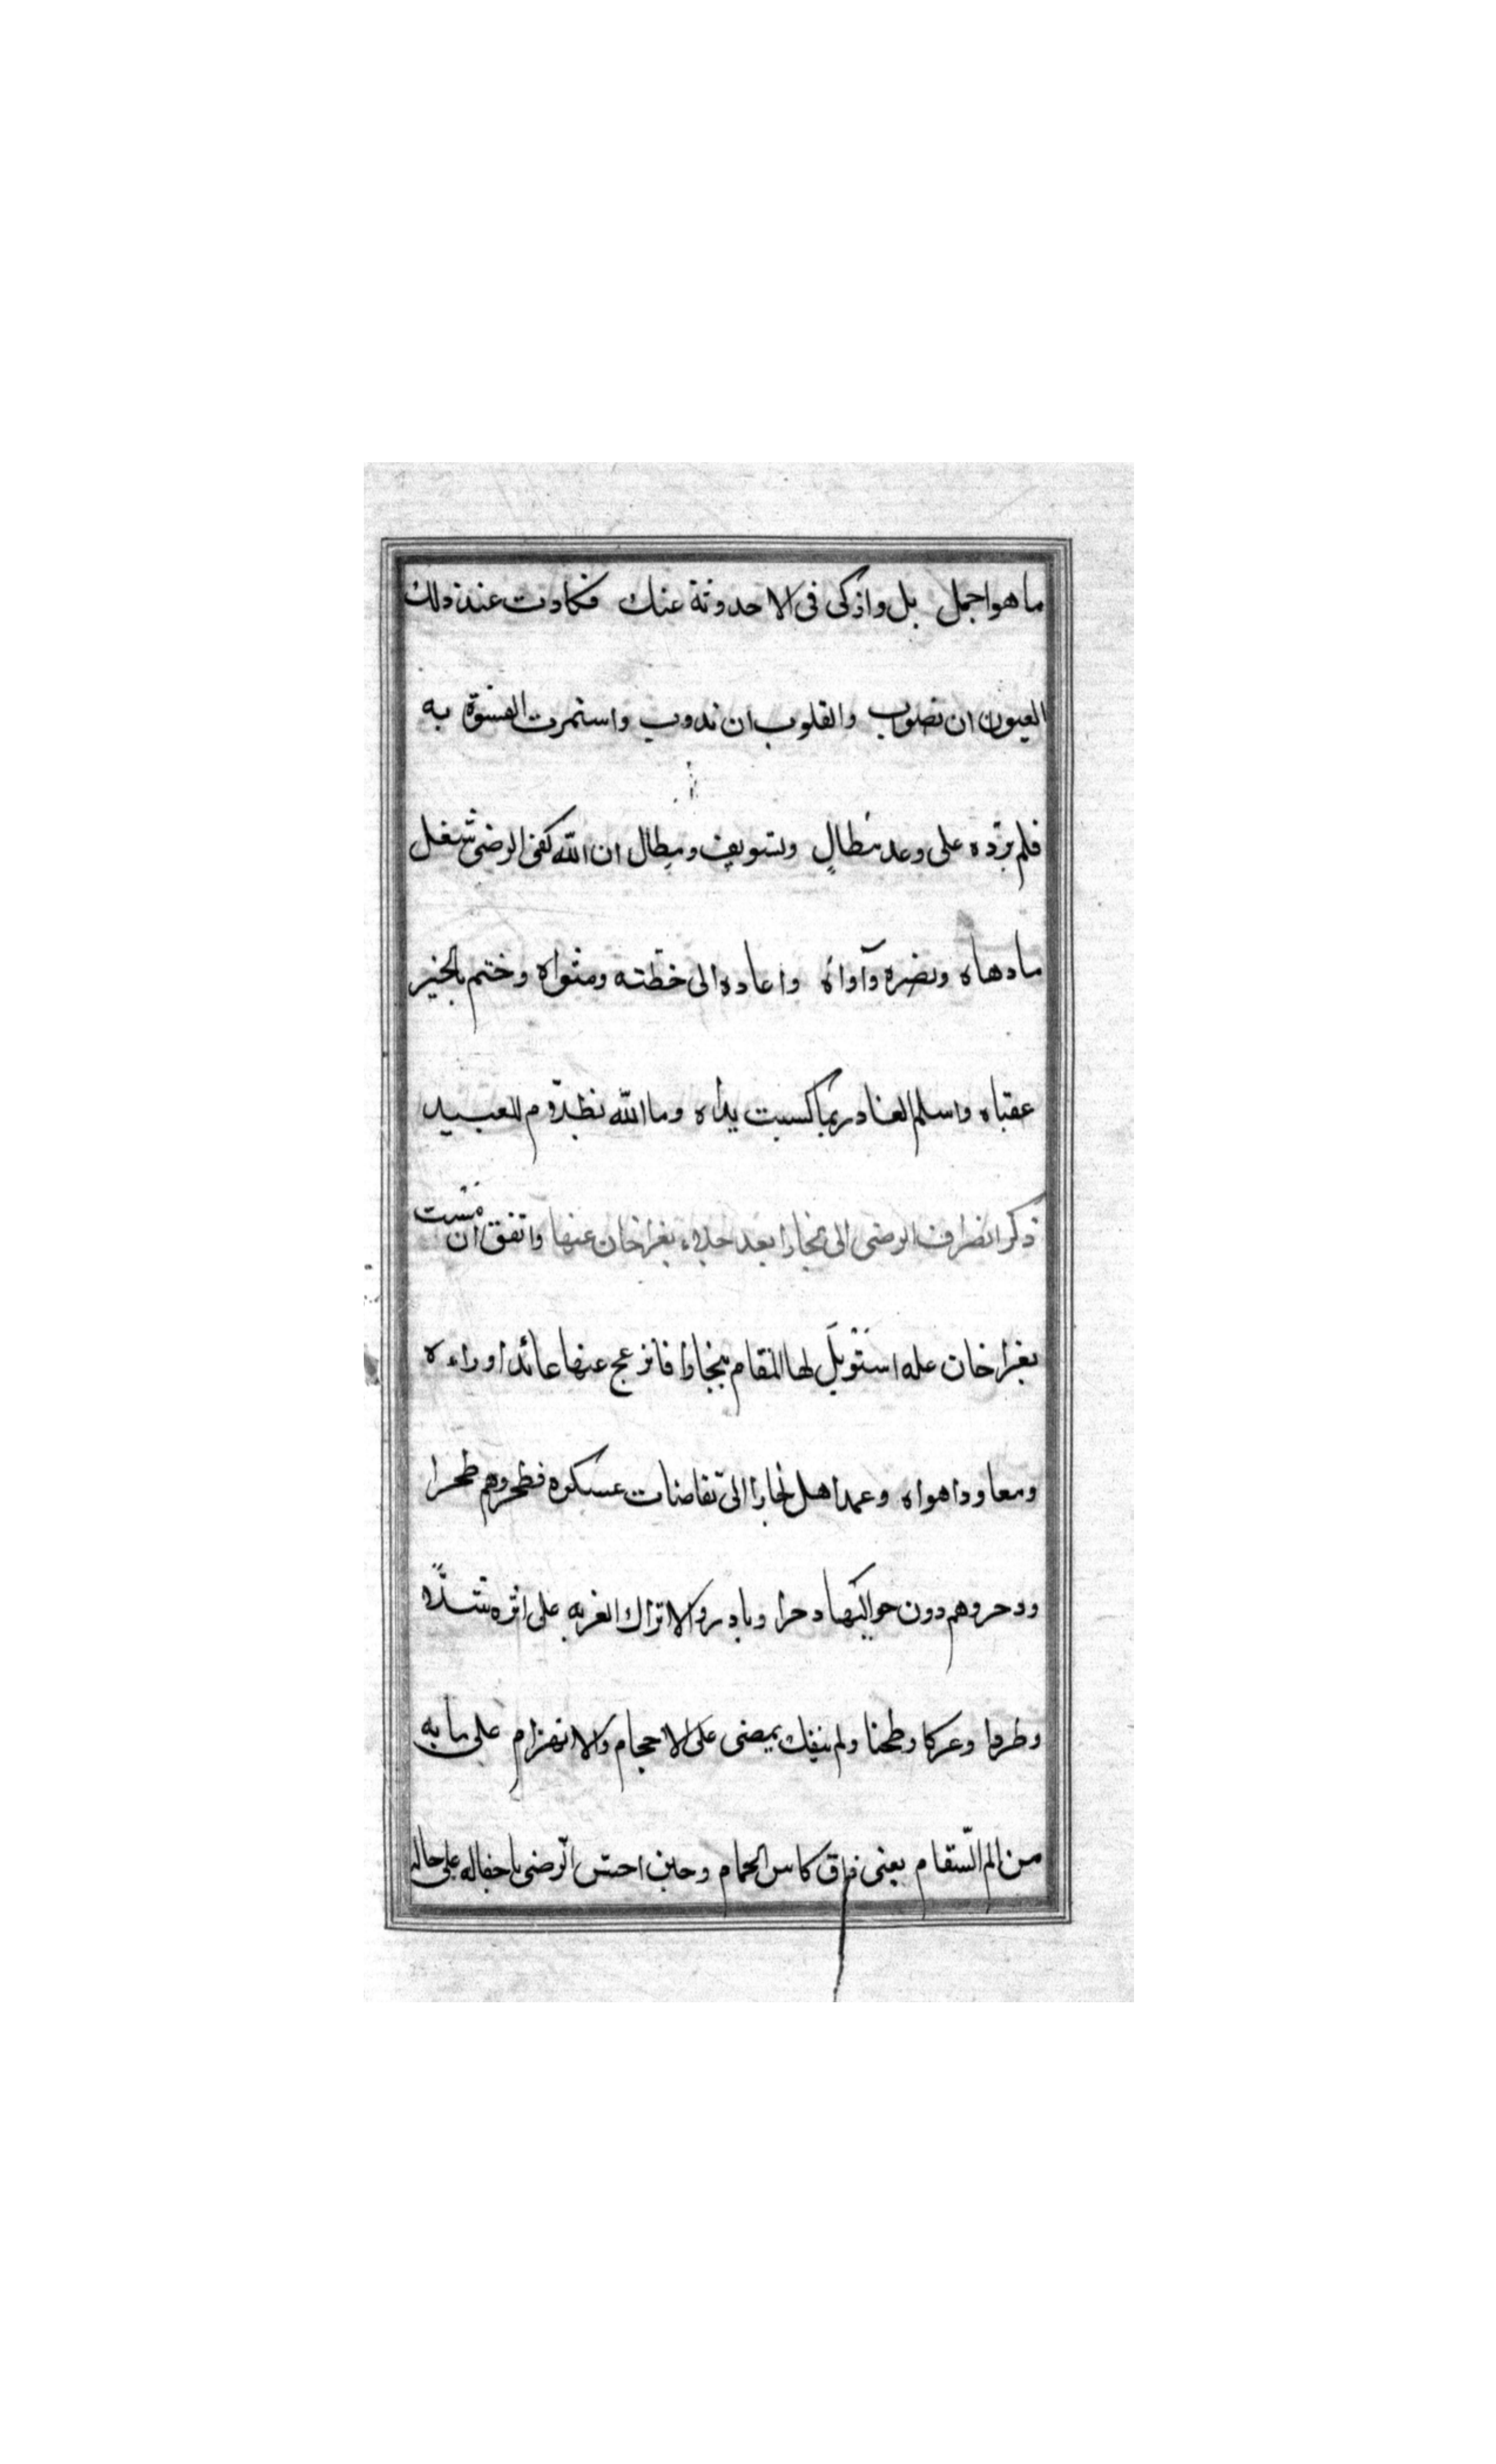 ما هو اجمل بل واذكى فى الاحدوثة عنك فكادت عند ذلك
العيون ان تصوب والقلوب ان تذوب واستمرت القسوة به
فلم يزده على وعد مطال وتسويف ومطال ان الله كفى الرضى شغل
ما دهاه ونصره وآواه واعاده الى خطته ومثواه وختم بالخير
عقباه واسلم الغادر بما كسبت يداه وما الله بظلّام للعبيد
ذكر انصراف الرضى الى بخارا بعد جلاء بغراخان عنها واتفق ان مَسّت
بغراخان عله استَوْبَلَ لها المقام ببخارا فانزعج عنها عائدا وراءه
ومعاودا هواه وعمد اهل بخارا الى نفاضات عسكره فطحروهم طحرا
ودحروهم دون حواليها دحرا وبادر والاتراك الغزيه على اثره شلّاً
وطردا وعركا وطحنا ولم ينفك يمضى على الاحجام والانهزام على ما به
من الم السّقام يعنى ذاق كاس الحمام وحين احسّ الرّضى باجفاله على حاله